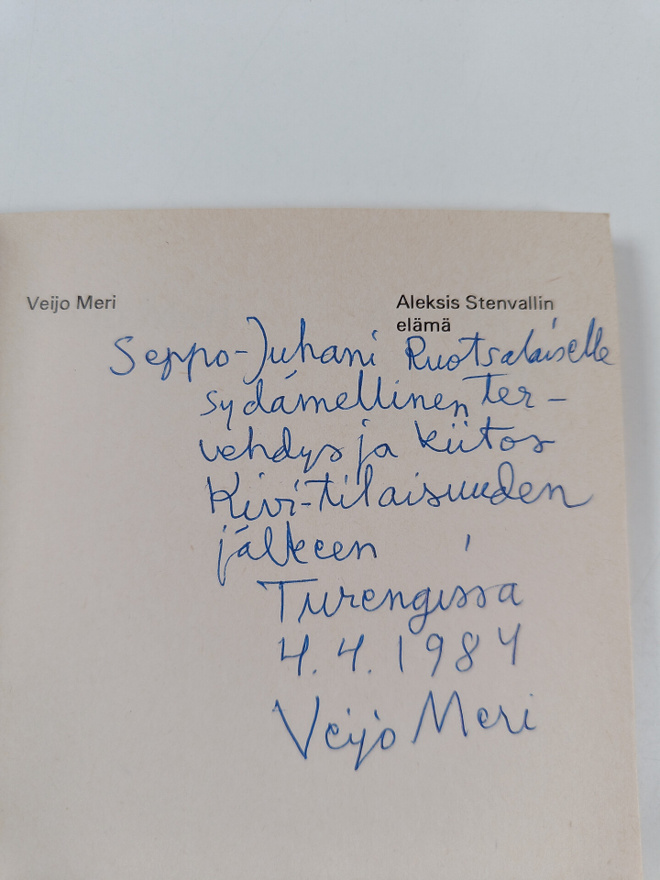 Veijo Meri
Aleksis Stenvallin
elämä
Seppo-Juhani Ruotsalaiselle
sydämellinen ter-
vehdys ja kiitos
Kivi-tilaisuuden
jälkeen
Turengissa
4.4.1984
Veijo Meri